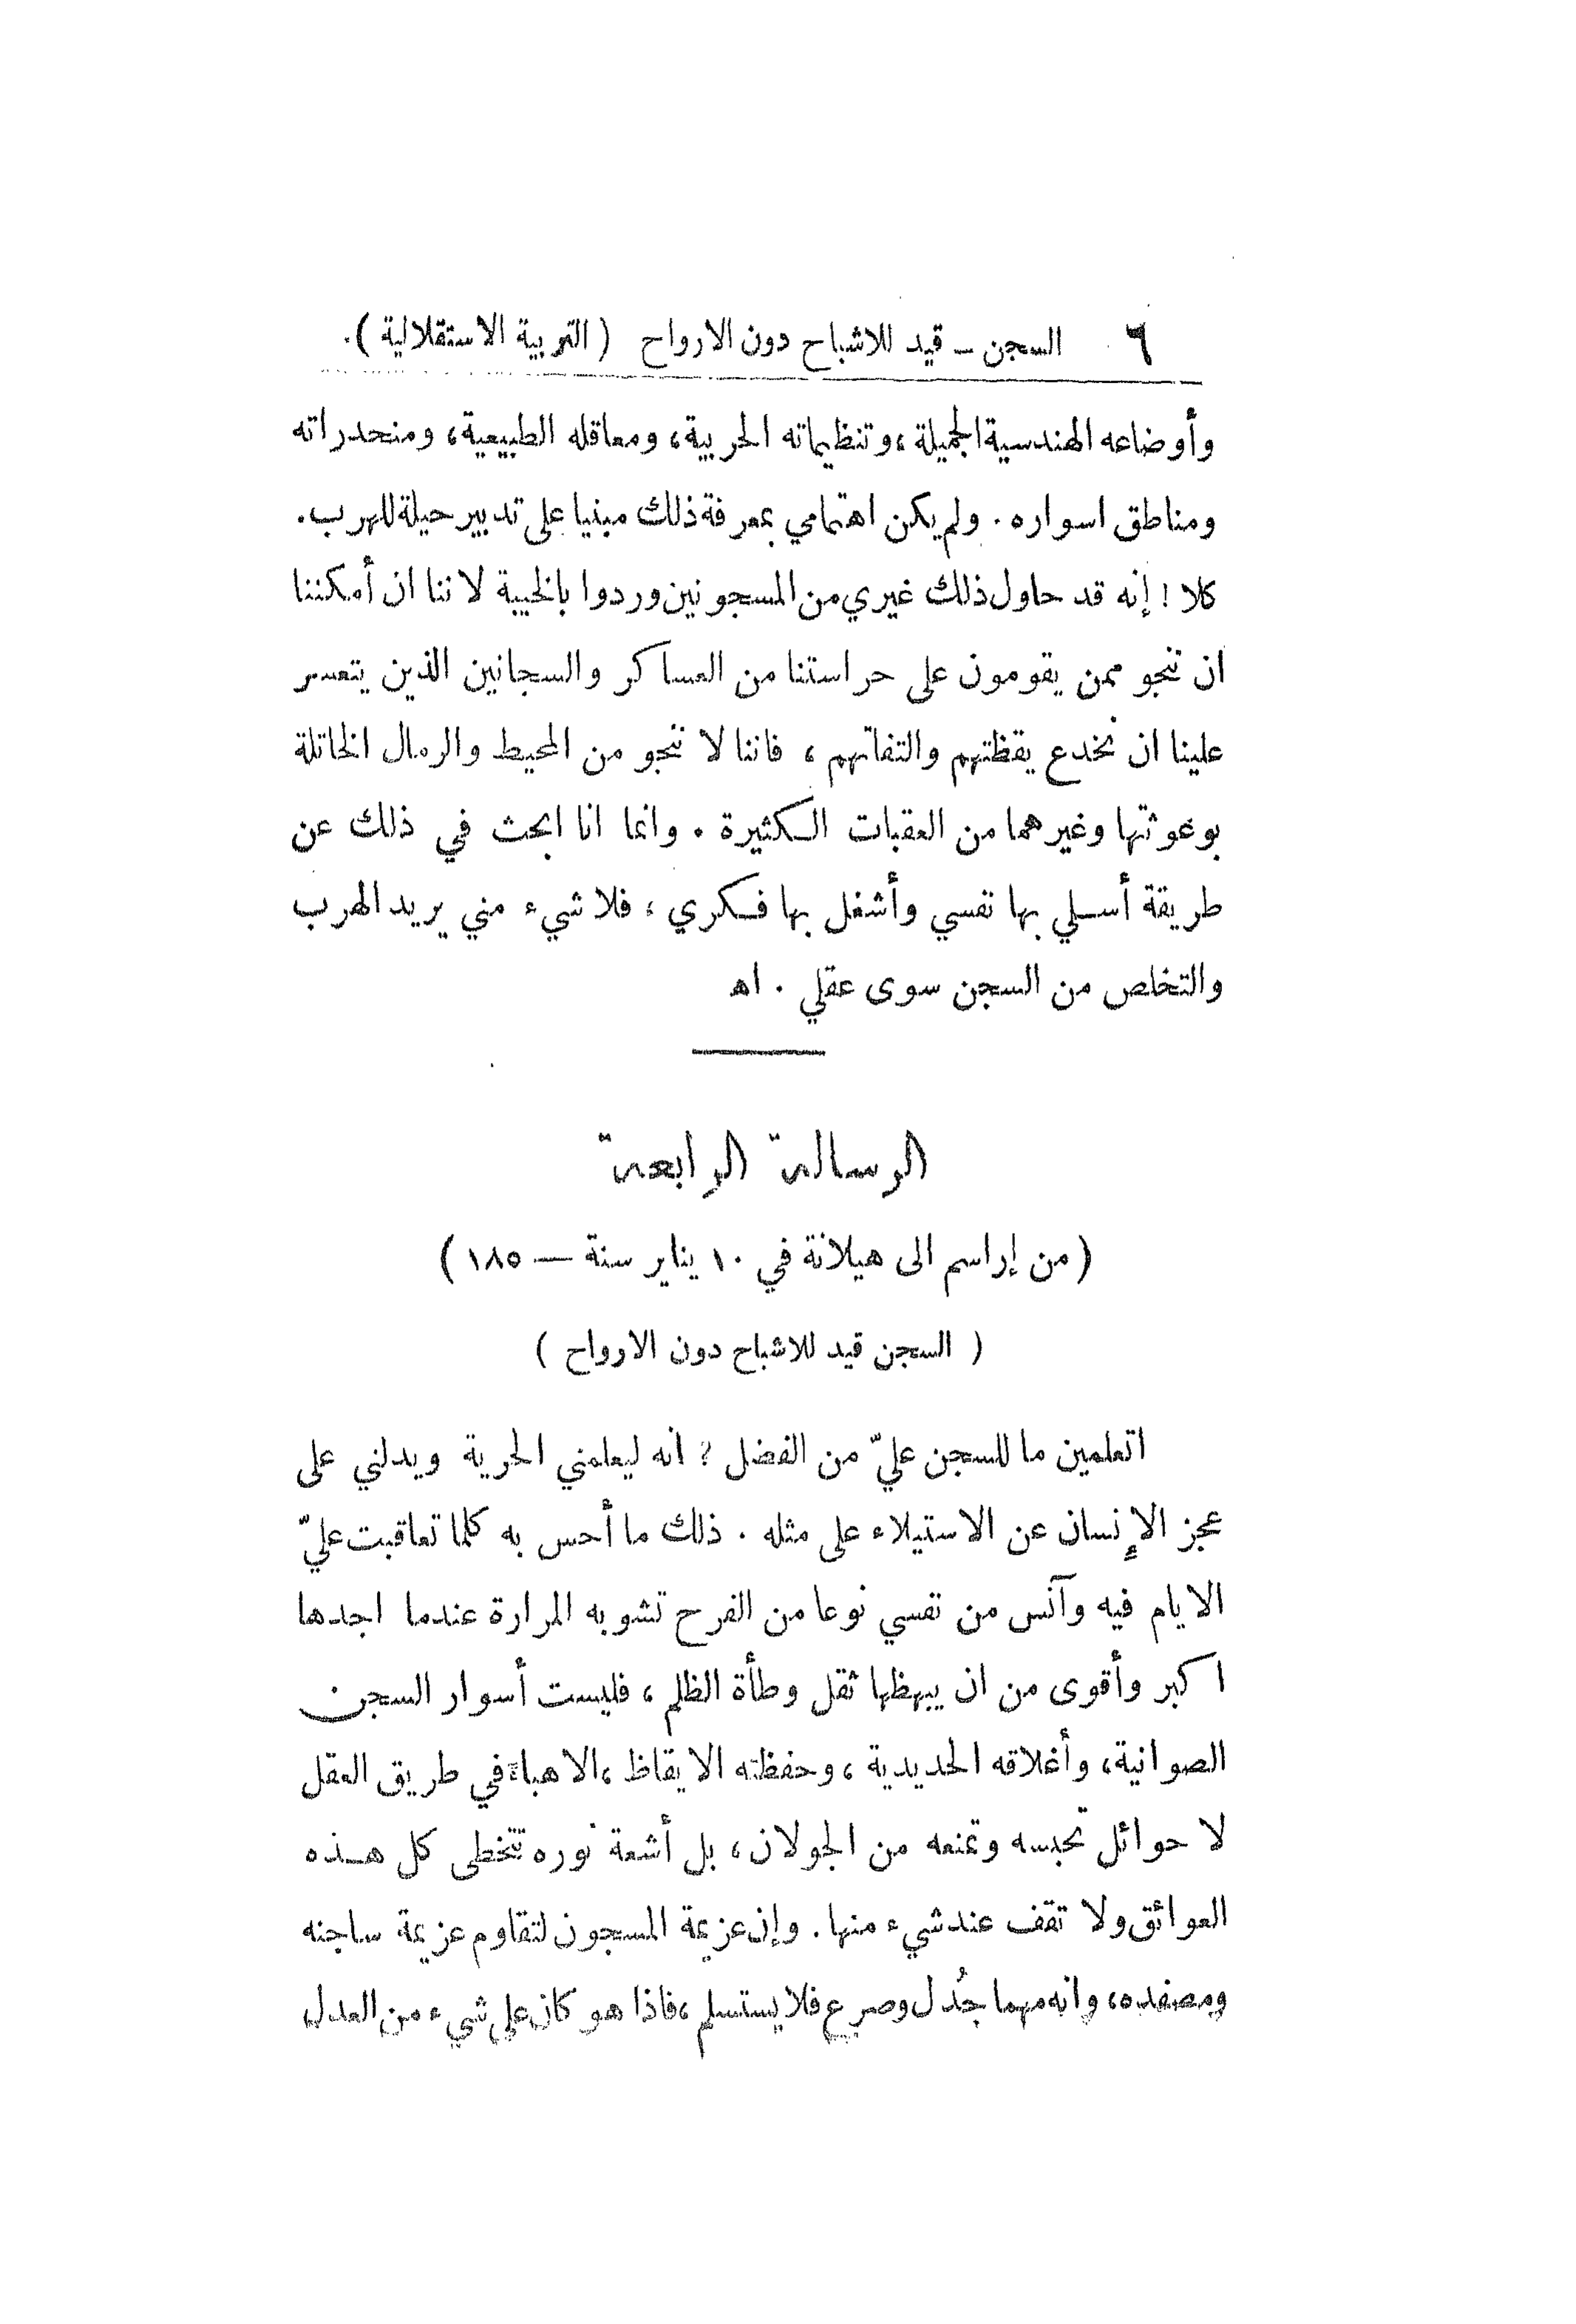 ٦ السجن – قيد للاشباح دون الارواح (التربية الاستقلالية).
وأوضاعه الهندسية الجميلة، وتنظيماته الحربية، ومعاقله الطبيعية، ومنحدراته
ومناطق اسواره. ولم يكن اهتمامي بمعرفة ذلك مبنيا على تدبير حيلة للهرب.
كلا! إنه قد حاول ذلك غيري من المسجونين وردوا بالخيبة لاننا ان أمكننا
ان ننجو ممن يقومون على حراستنا من العساكر والسجانين الذين يتعسر
علينا ان نخدع يقظتهم والتفاتهم، فاننا لا ننجو من المحيط والرمال الخاتلة
بوعوثتها وغيرهما من العقبات الكثيرة. وانما انا ابحث في ذلك عن
طريقة أسلي بها نفسي وأشغل بها فكري، فلا شيء مني يريد الهرب
والتخلص من السجن سوى عقلي. اهـ
الرسالة الرابعة
(من إراسم الى هيلانة في ١٠ يناير سنة — ١٨٥)
(السجن قيد للاشباح دون الارواح)
اتعلمين ما للسجن عليّ من الفضل؟ انه ليعلمني الحرية ويدلني على
عجز الإنسان عن الاستيلاء على مثله. ذلك ما أحس به كلما تعاقبت عليّ
الايام فيه وآنس من نفسي نوعا من الفرح تشوبه المرارة عندما اجدها
اكبر وأقوى من ان يبهظها ثقل وطأة الظلم، فليست أسوار السجن
الصوانية، وأغلاقه الحديدية، وحفظته الايقاظ، الا هباء في طريق العقل
لا حوائل تحبسه وتمنعه من الجولان، بل أشعة نوره تتخطى كل هذه
العوائق ولا تقف عند شيء منها. وإن عزيمة المسجون لتقاوم عزيمة ساجنه
ومصفده، وانه مهما جُدل وصرع فلا يستسلم، فاذا هو كان على شيء من العدل